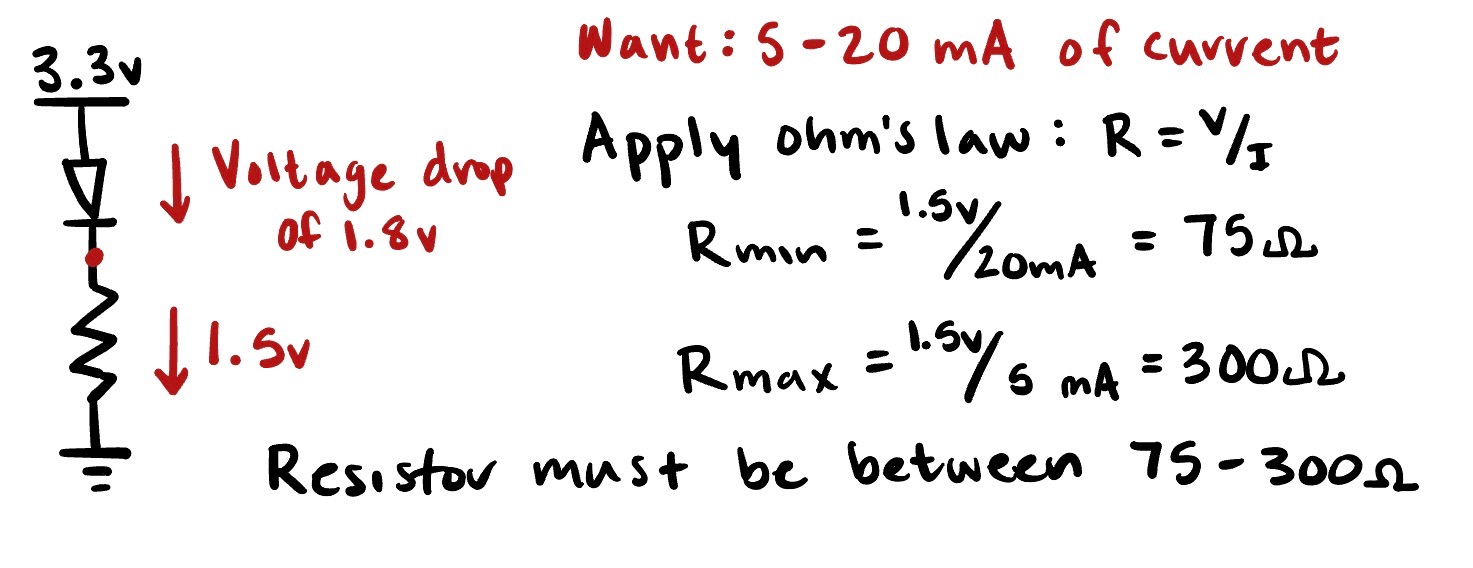 3.3v
Voltage drop
of 1.8v
1.5v
Want: 5-20 mA of current
Apply ohm's law: R = V/I
Rmin = 1.5v/20mA = 75Ω
Rmax = 1.5v/5 mA = 300Ω
Resistor must be between 75-300Ω